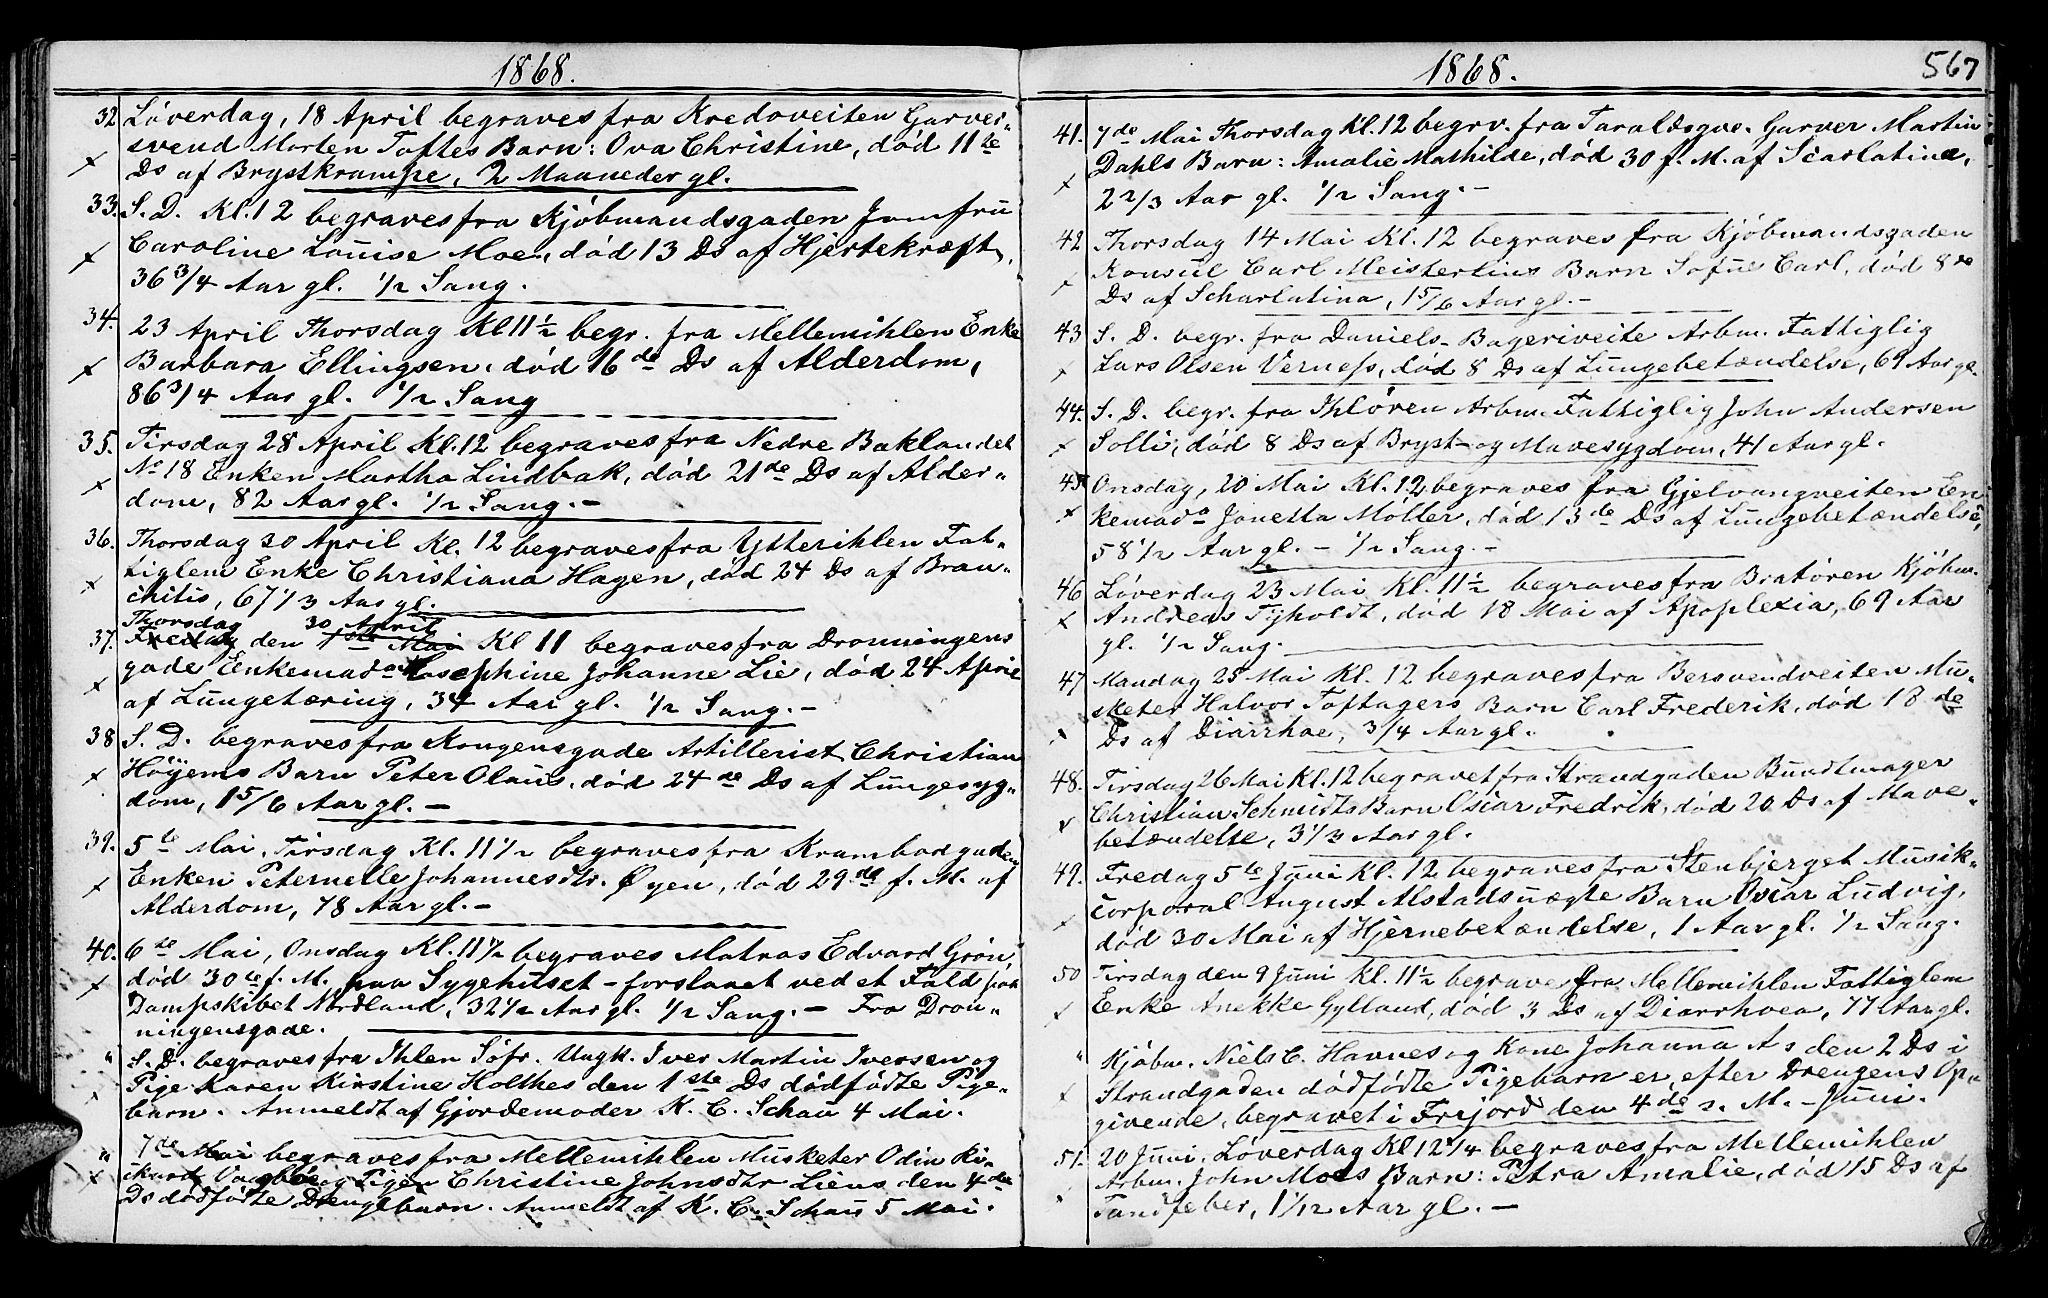 1868.
32 Löverdag, 18 April begraves fra Kredoveiten Garver-
svend Morten Toftes Barn: Ova Christine, död 11te
Ds af Brystkrampe, 2 Maaneder gl.
33. S. D. Kl. 12 begraves fra Kjöbmandsgaden Jomfru
Caroline Louise Moe, död 13 Ds af Hjertekræft,
36 3/4 Aar gl. 1/2 Sang.
34. 23 April Thorsdag Kl 11 1/2 begr. fra Mellemihlen Enke
Barbara Ellingsen, död 16de Ds af Alderdom,
86 3/4 Aar gl. 1/2 Sang
35. Tirsdag 28 April Kl. 12 begraves fra Nedre Baklandet
No 18 Enken Martha Lindbak, död 21de Ds af Alder-
dom, 82 Aar gl. 1/2 Sang. -
36. Thorsdag 30 April Kl. 12 begraves fra Ytterihlen Fat-
tiglem Enke Christiana Hagen, död 24 Ds af Bron-
chitis, 67 1/3 Aar gl.
Thorsdag 30 April
37. Fredag den 1ste Mai Kl 11 begraves fra Dronningens
gade Enkemadam Josephine Johanne Lie, död 24 April
af Lungetæring, 34 Aar gl. 1/2 Sang. -
38 S. D. begraves fra Kongensgade Artillerist Christian
Höyems Barn Peter Olaus, död 24de Ds af Lungesyg-
dom, 1 5/6 Aar gl. -
39. 5te Mai, Tirsdag Kl. 11 1/2 begraves fra Krambodgaden
Enken Peternelle Johannesdtr. Øyen, död 29de f. M. af
Alderdom, 78 Aar gl. -
40. 6te Mai, Onsdag Kl. 11 1/2 begraves Matros Edvard Grön,
död 30te f. M. paa Sygehuset - forslaaet ved et Fald paa
Dampskibet Nordland, 32 1/2 Aar gl. 1/2 Sang. - Fra Dron-
ningensgade.
" S. D. begraves fra Ihlen Söfr. Ungk. Iver Martin Iversen og
Pige Karen Kirstine Holthes den 1ste Ds dödfödte Pige-
barn. Anmeldt af Gjordemoder K. C. Schau 4 Mai.
" 7de Mai begraves fra Mellemihlen Musketer Odin Ri-
og Pigen Christine Johnsdtr Liens den 4de
Ds dödfödte Drengebarn. Anmeldt af K. C. Schau 5 Mai.
1868. 567
41. 7de Mai Thorsdag Kl. 12 begrv. fra Taraldsgve. Garver Martin
Dahls Barn: Amalie Mathilde, död 30 f. M. af Scarlatina,
2 2/3 Aar gl. 1/2 Sang. -
42 Thorsdag 14 Mai Kl. 12 begraves fra Kjöbmandsgaden
Konsul Carl Meisterlins Barn Sofus Carl, död 8de
Ds af Scharlatina, 1 5/6 Aar gl. -
43 S. D. begr. fra Daniels-Bageriveite Arbm. Fattiglig
Lars Olsen Verness, död 8 Ds af Lungebetændelse, 69 Aar gl.
44. S. D. begr. fra Ihlören Arbm. Fattiglig John Andersen
Solli, död 8 Ds af Bryst- og Mavesygdom, 41 Aar gl.
45 Onsdag, 20 Mai Kl. 12 begraves fra Gjelvangveiten En-
kemada Janetta Möller, död 13de Ds af Lungebetændelse,
58 1/2 Aar gl. - 1/2 Sang. -
46 Löverdag 23 Mai Kl. 11 1/2 begraves fra Bratören Kjöbm.
Andreas Tyholdt, död 18 Mai af Apoplexia, 69 Aar
gl. 1/2 Sang.
47 Mandag 25 Mai Kl. 12 begraves fra Bersvendveiten Mu-
sketer Halvor Toftagers Barn Carl Frederik, död 18de
Ds af Diarrhoe, 3/4 Aar gl.
48. Tirsdag 26 Mai Kl. 12 begravet fra Strandgaden Bundtmager
Christian Schmidts Barn Oscar Fredrik, död 20 Ds af Mave-
betændelse, 3 1/3 Aar gl.
49. Fredag 5te Juni Kl. 12 begraves fra Stenbjerget Musik-
corporal August Alstads uægte Barn Oscar Ludvig,
död 30 Mai af Hjernebetændelse, 1 Aar gl. 1/2 Sang.
50 Tirsdag den 9 Juni Kl. 11 1/2 begraves fra Mellemihlen Fattiglem
Enke Anekke Gylland, död 3 Ds af Diarrhoea, 77 Aar gl.
" Kjöbm. Niels C. Havnes og Kone Johanna A s den 2 Ds i
Strandgaden dödfödte Pigebarn er, efter Drengens Op-
givende, begravet i Frejord den 4de s. M. - Juni.
51. 20 Juni, Löverdag Kl 12 1/4 begraves fra Mellemihlen
Arbm. John Moes Barn: Petra Amalie, död 15 Ds af
Tandfeber, 1 1/12 Aar gl. -